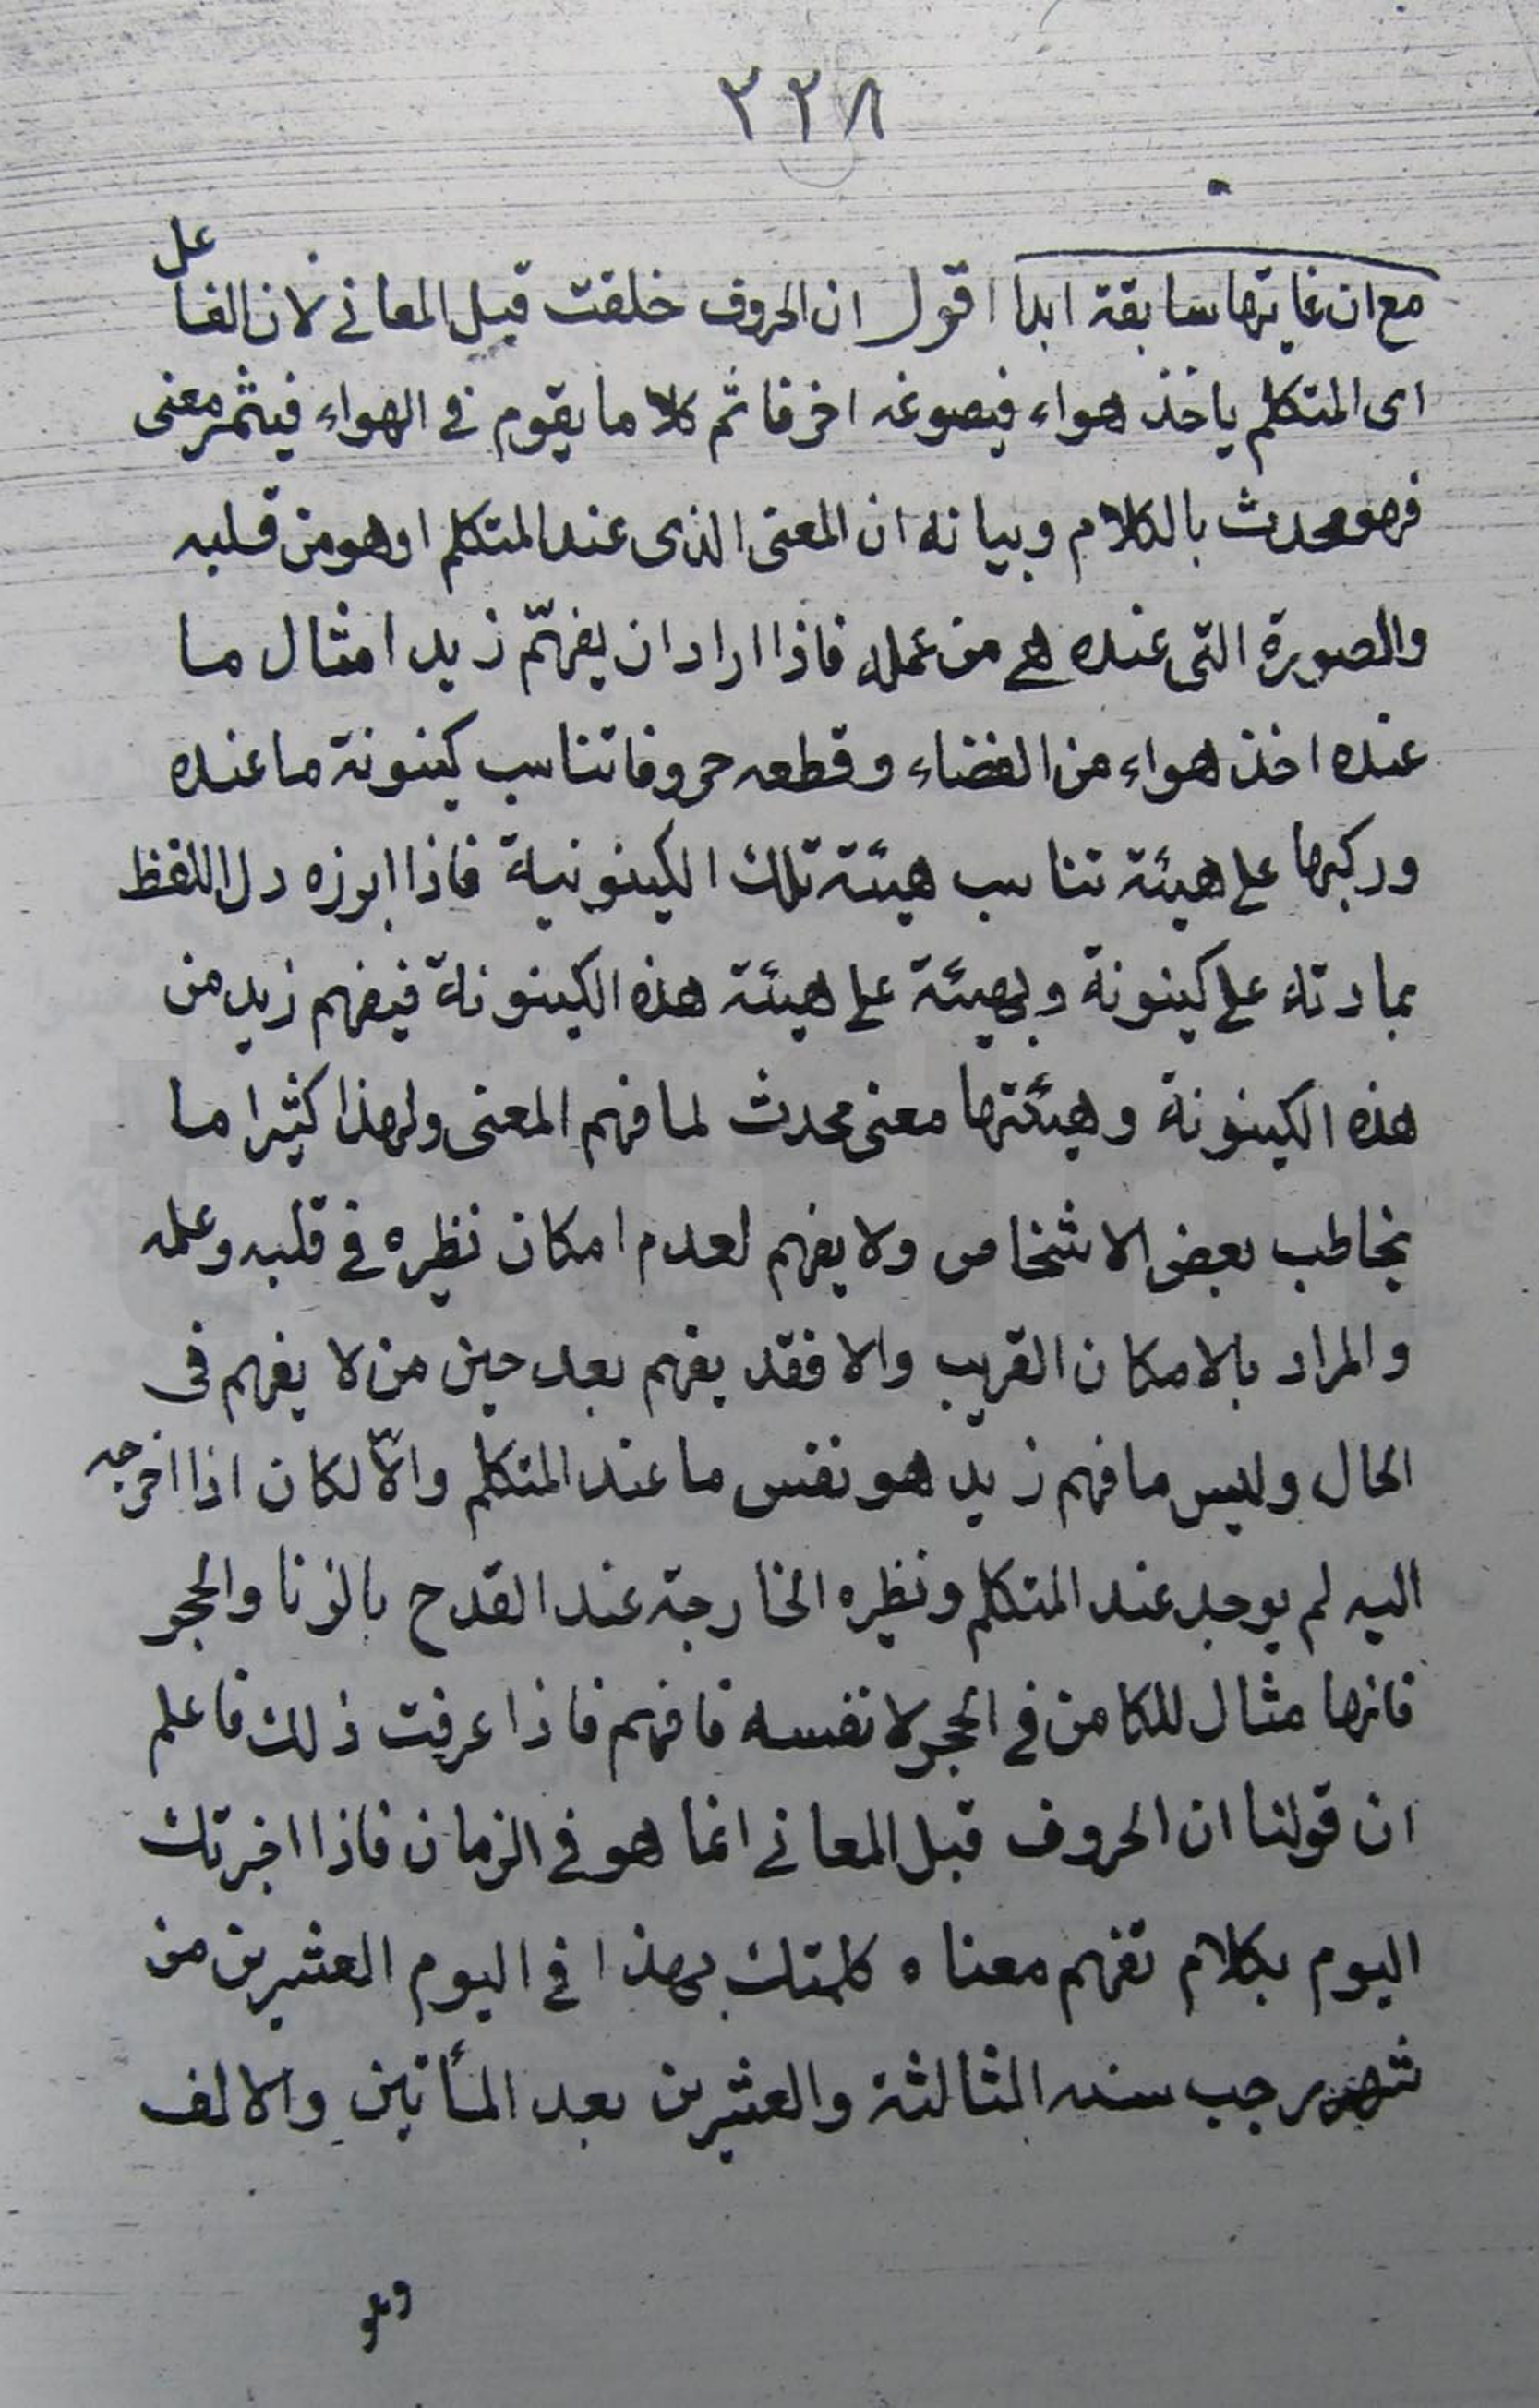 ٣٢٨
مع ان غايتها سابقة ابدا اقول ان الحروف خلقت قبل المعانى لان الفاعل
اى المتكلم ياخذ هواء فيصوغه احرفا ثم كلاما يقوم فى الهواء فيثمر معنى
فهو محدث بالكلام وبيانه ان المعنى الذى عند المتكلم او هو من قلبه
والصورة التى عنده هى من عمله فاذا اراد ان يفهّم زيدا مثال ما
عنده اخذ هواء من الفضاء وقطعه حروفا تناسب كينونة ما عنده
وركبها على هيئة تناسب هيئة تلك الكينونية فاذا ابرزه دل اللفظ
بمادته على كينونة وبهيئة على هيئة هذه الكينونة فيفهم زيد من
هذه الكينونة وهيئتها معنى محدث لما فهم المعنى ولهذا كثيرا ما
يخاطب بعض الاشخاص ولا يفهم لعدم امكان نظيره فى قلبه وعلمه
والمراد بالامكان القريب والا فقد يفهم بعد حين من لا يفهم فى
الحال وليس ما فهم زيد هو نفس ما عند المتكلم والّا لكان اذا اخرجه
اليه لم يوجد عند المتكلم ونظيره الخارجة عند القدح بالزنا والحجر
فانها مثال للكامن فى الحجر لا نفسه فافهم فاذا عرفت ذلك فاعلم
ان قولنا ان الحروف قبل المعانى انما هو فى الزمان فاذا اخبرتك
اليوم بكلام تفهم معناه كلمتك بهذا فى اليوم العشرين من
شهر رجب سنه الثالثة والعشرين بعد المأتين والالف